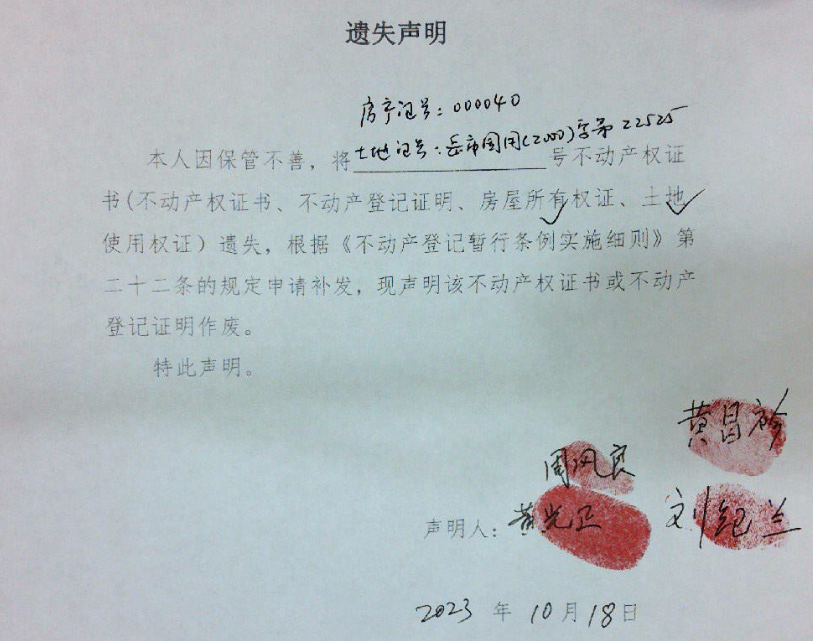 遗失声明
房产证号：000040
土地证号：岳市国用(2000)字第22525
本人因保管不善，将号不动产权证
书(不动产权证书、不动产登记证明、房屋所有权证、土地
使用权证）遗失，根据《不动产登记暂行条例实施细则》第
二十二条的规定申请补发，现声明该不动产权证书或不动产
登记证明作废。
特此声明。
黄昌
周凤良
声明人：黄光卫 刘纪兰
2023年10月18日